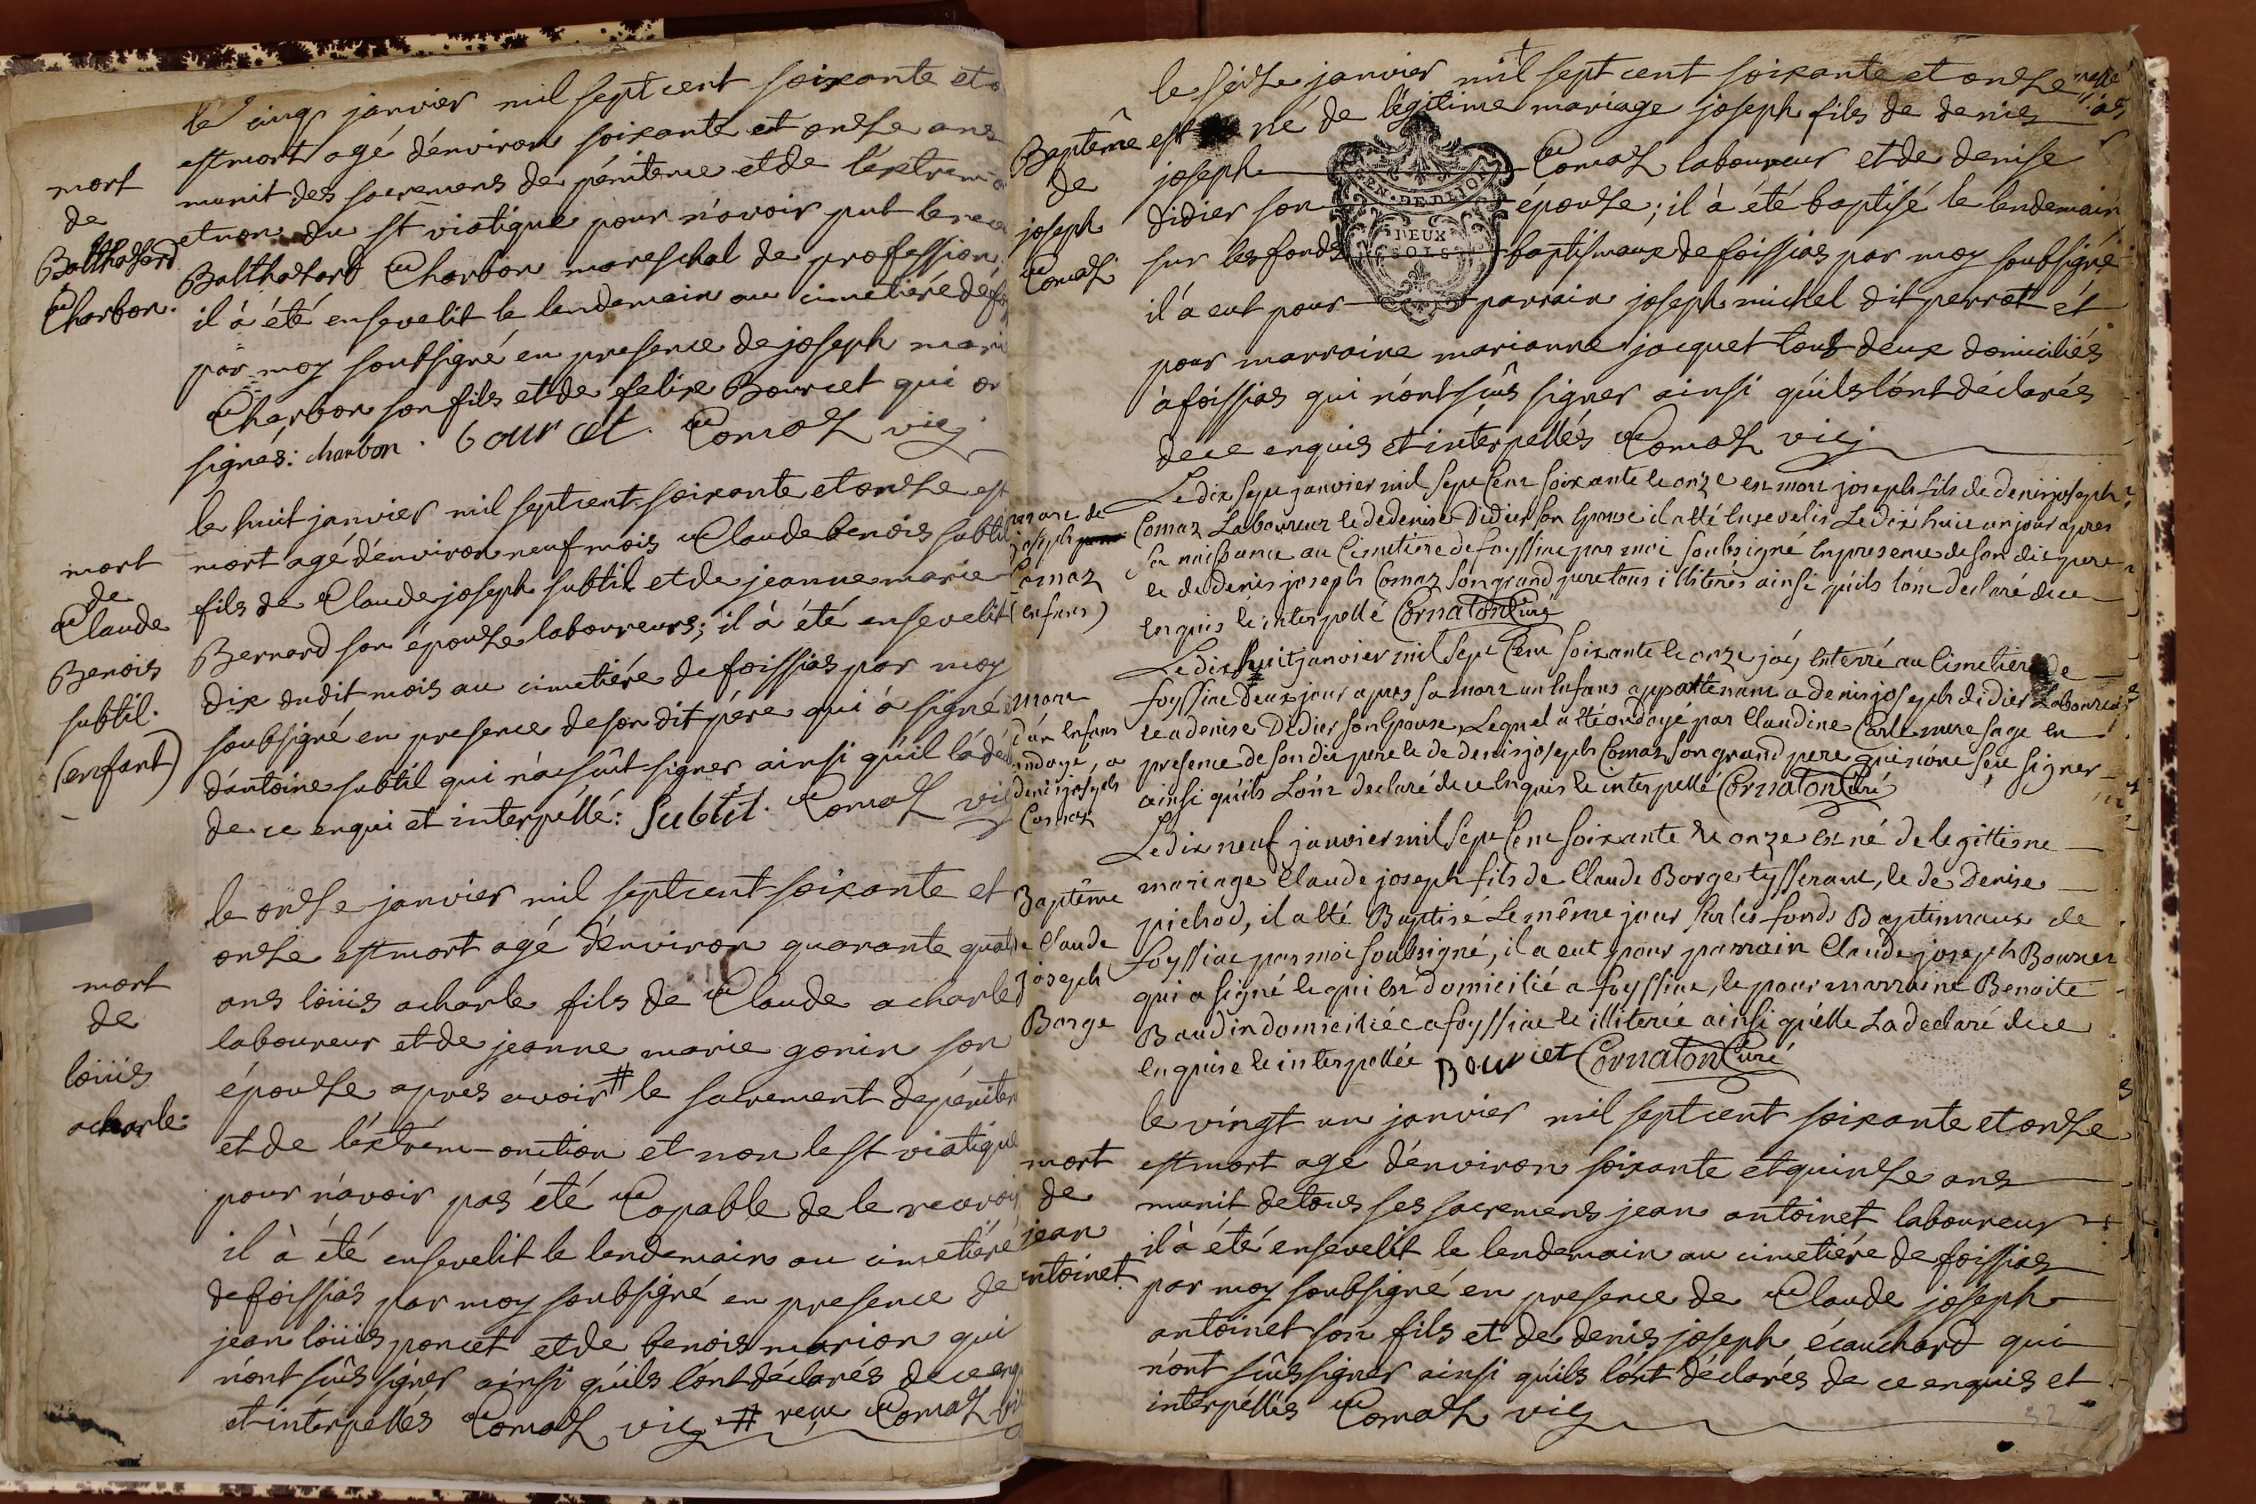 le cinq janvier mil sept cent soixante et
est mort agé d'environ soixante et onze ans
munit des sacremens de pénitence et de l'extrem
et non du st viatique pour n'avoir put le rece
Balthazard Charbon mareschal de profession
il à été ensevelit le lendemain au cimetiére de fo
par moy soubsigné en presence de joseph mari
Charbon son fils et de felix Bourcet qui on
signés: charbon. bourcet. Comaz vic
mort
de
Balthazard
Charbon.
le huit janvier mil sept cent soixante et onze est
mort agé d'environ neuf mois Claude benois subtil
fils de Claude joseph subtil et de jeanne marie
Bernard son épouze laboureurs; il à été ensevelit
dix dudit mois au cimetiére de foissias par moy
soubsigné en presence de son dit pére qui à signé
d'antoine subtil qui n'a sçût signer ainsi qu'il l'a dé
de ce enqui et interpéllé: Subtil. Comaz vic
mort
de
Claude
Benois
subtil.
(enfant)
le onze janvier mil sept cent soixante et
onze est mort agé d'environ quarante quat
ans loüis acharle fils de Claude acharle
laboureur et de jeanne marie gonin son
épouze aprés avoir # le sacrement de péniten
et de l'extrém-onction et non le st viatique
pour n'avoir pas été Capable de le recevoir
il à été ensevelit le lendemain au cimetiére
de foissias par moy soubsigné en presence de
jean loüis poncet et de benois marion qui
n'ont sçûs signer ainsi qu'ils l'ont déclarés de ce enq
et interpéllés Comaz vic # reçu Comaz vic
mort
de
loüis
acharle.
le séize janvier mil sept cent soixante et onze
est né de légitime mariage joseph fils de denis
joseph Comaz laboureur et de denise
didier son épouze; il à été baptisé le lendemain
sur les fonds baptismaux de foissias par moy soubsigné
il a eut pour parrain joseph michel dit perrat et
pour marraine marianne jacquet tous deux domiciliés
à foissias qui n'ont sçûs signer ainsi qu'ils l'ont déclarés
de ce enquis et interpéllés Comaz vic
Baptême
de
joseph
Comaz
GEN. DE DIJON
DEUX
SOLS
Le dix sept janvier mil sept Cent soixante et onze est mort joseph fils de denis joseph
Comaz Laboureur et de denise Didier son Epouse il a été Ensevelis Le dix huit un jour apres
sa naissance au Cimetiere de foyssiac par moi soubsigné En presence de son dit pere
et de denis joseph Comaz son grand pere tous illiterés ainsi qu'ils l'ont declaré de ce
Enquis et interpellé Cornaton Curé
mort de
joseph
Comaz
(enfans)
Le dix huit janvier mil sept Cent soixante et onze j'ay Enterré au Cimetiere de
foyssiac Deux jour apres sa mort un Enfans appartenant a denis joseph didier Laboureur
et a denise Didier son Epouse Lequel a été ondoyé par Claudine Carle mere sage En
presence de son dit pere et de denis joseph Comaz son grand pere qui n'ont sçu signer
ainsi qu'ils L'ont declaré de ce Enquis et interpellé Cornaton Curé
mort
d'un Enfans
ondoyé, a
denis joseph
Comaz
Le dix neuf janvier mil sept Cent soixante et onze est né de legittime
mariage Claude joseph fils de Claude Borge tysserant, et de Denise
pichod, il a été Baptisé Le même jour sur les fonds Baptismaux de
foyssiac par moi soubsigné, il a eut pour parrain Claude joseph Bourcet
qui a signé et qui est domicilié a foyssiac, et pour marraine Benoite
Baudin domiciliée a foyssiac et illiterée ainsi qu'elle La declaré de ce
enquise et interpellée Bourcet Cornaton Curé
Baptême
de Claude
joseph
Borge
le vingt un janvier mil sept cent soixante et onze
est mort agé d'environ soixante et quinze ans
munit de tous ses sacremens jean antoinet laboureur
il à été ensevelit le lendemain au cimetiére de foissias
par moy soubsigné en presence de Claude joseph
antoinet son fils et de denis joseph écauchard qui
n'ont sçûs signer ainsi qu'ils l'ont déclarés de ce enquis et
interpéllés Comaz vic
mort
de
jean
antoinet.